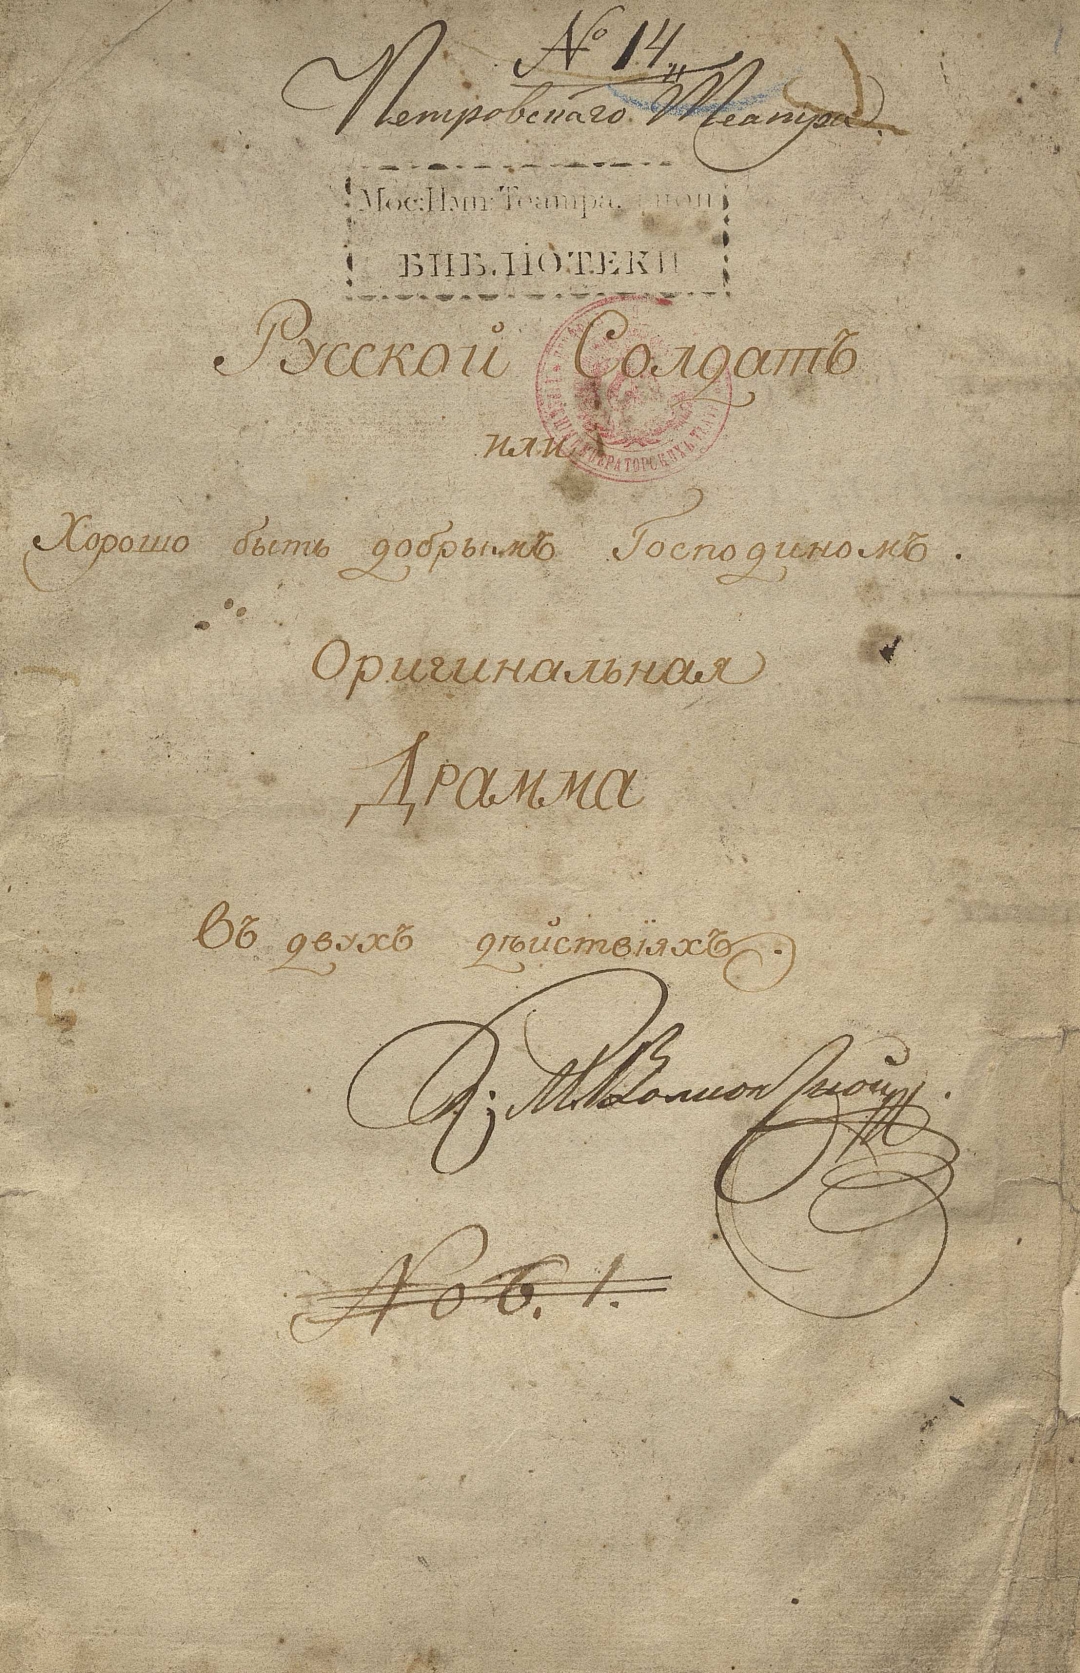 № 14
Петровскаго Театра.
Мос: Имп: Театра
БИБЛІОТЕКИ
Русской Солдатъ
или
Хорошо быть добрымъ Господиномъ.
Оригинальная
Драмма
въ двухъ дѣйствіяхъ.
К: М: Волконской
№ 6. 1.